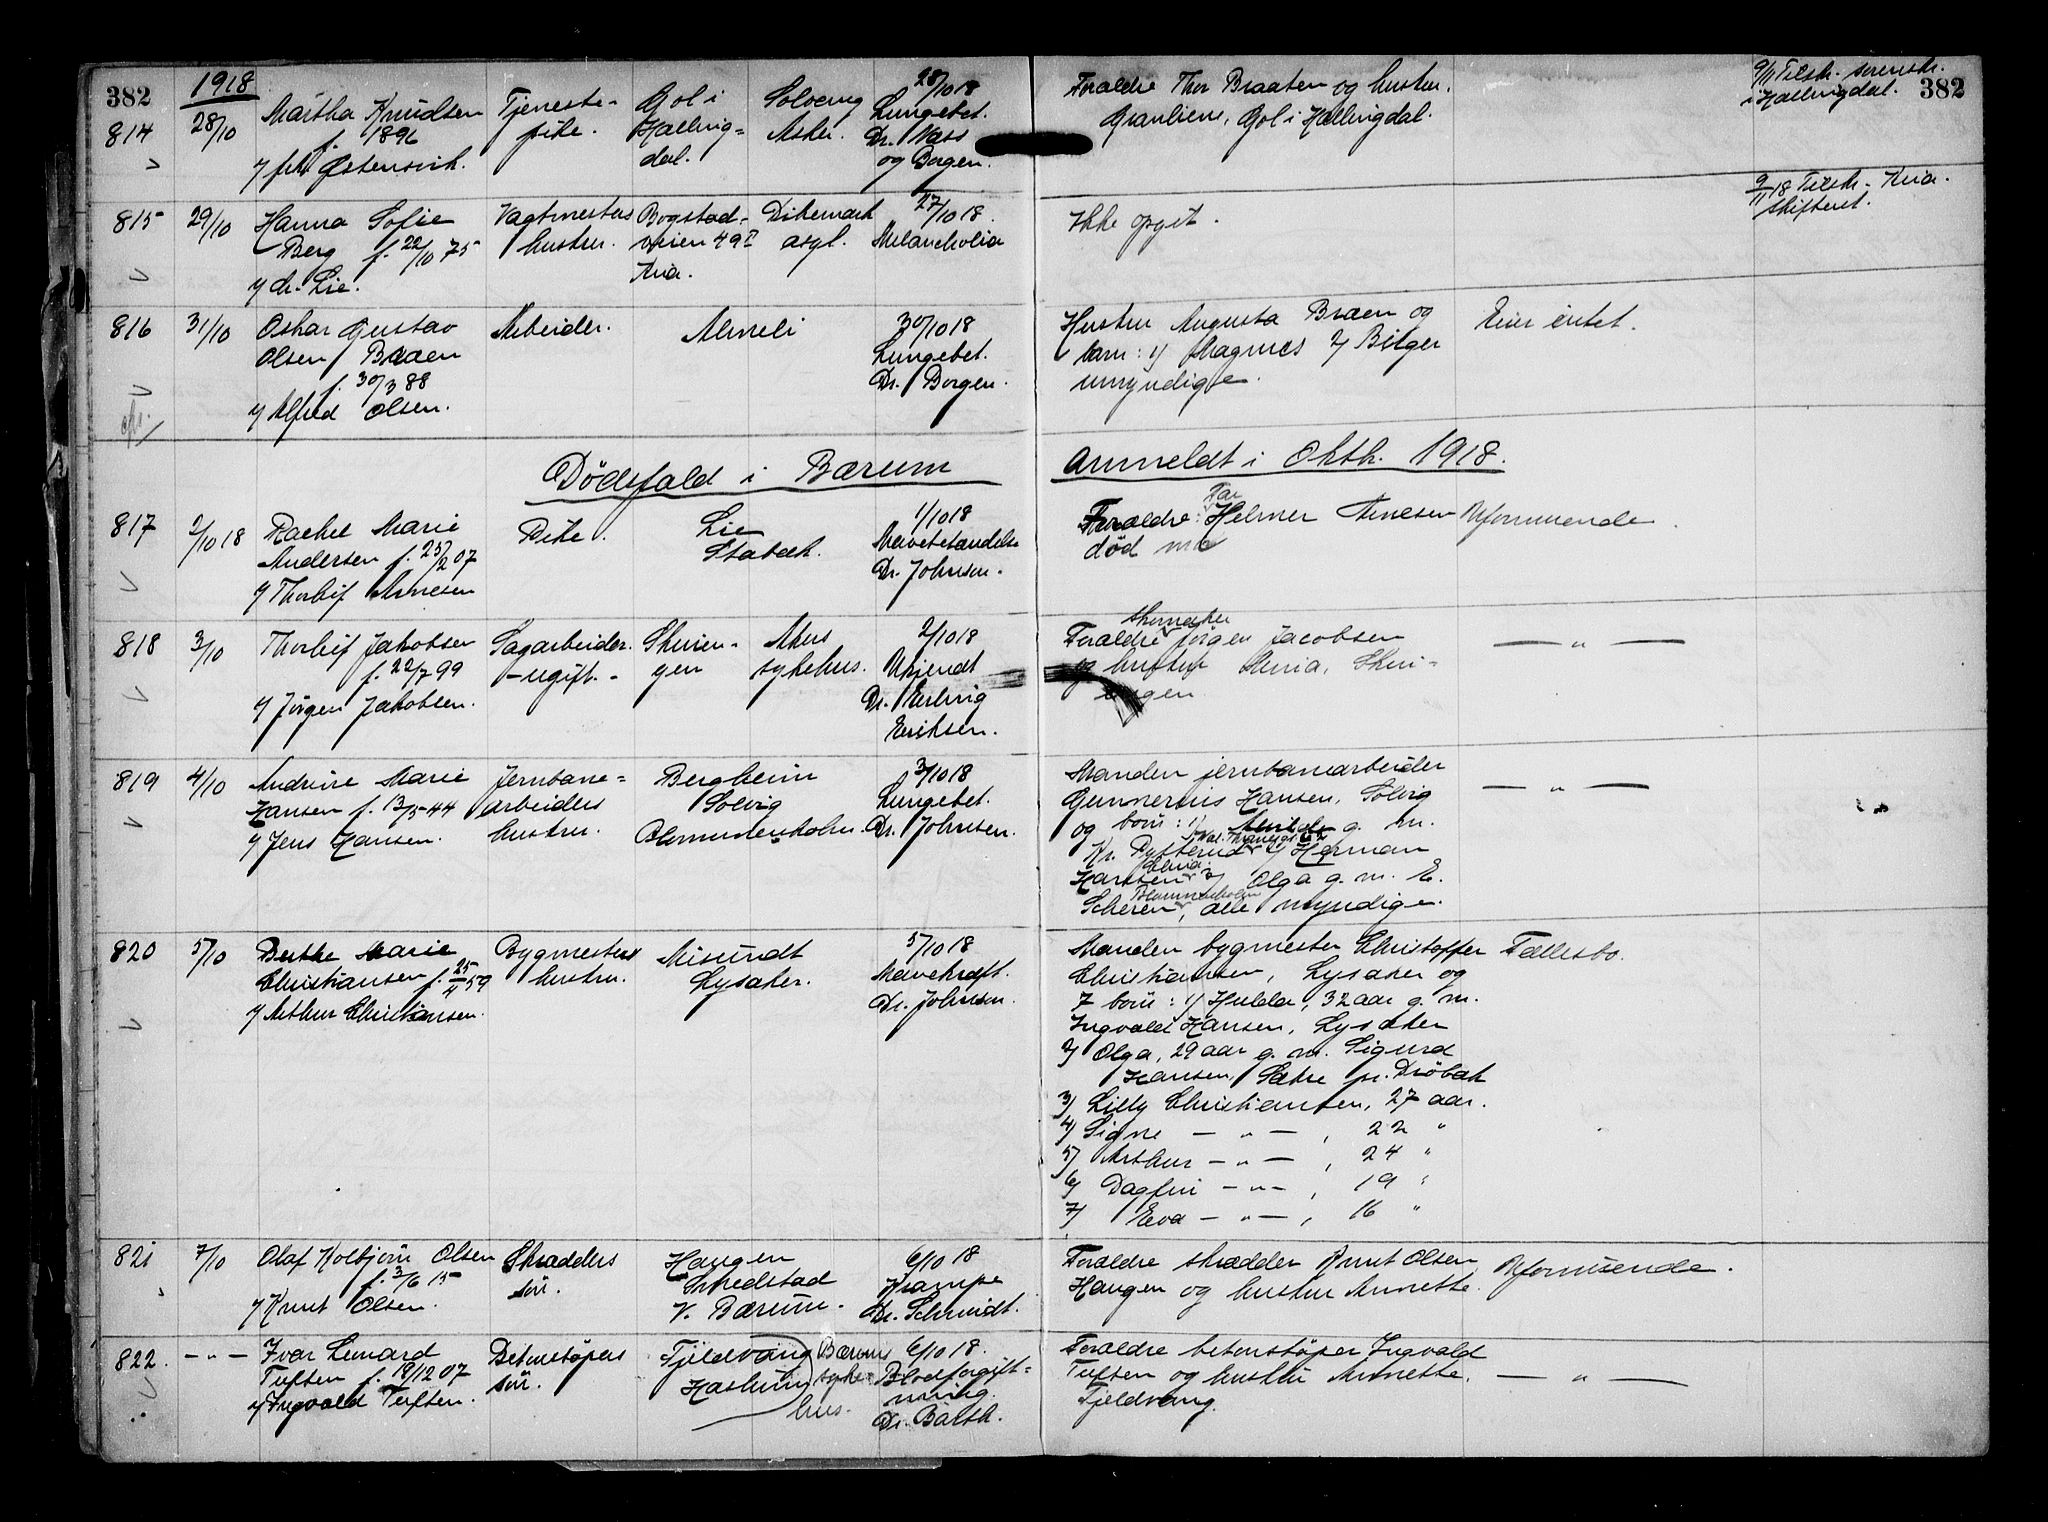 382
1918
814
28/10
Martha Knudsen
f. 1896
v/ frk. Østensvik.
Tjeneste-
pike.
Gol i
Halling-
dal.
Solveng
Asker.
28/10 18
Lungebet.
Dr. Nass
og Borgen.
Forældre Thor Braaten og hustru.
Granlien, Gol i Hallingdal.
9/11 Tilskr. sorenskr.
i Hallingdal.
382
815
29/10
Hanna Sofie
Berg f. 22/10 75
v/ dr. Lie.
Vagtmesters
hustru.
Bogstad-
veien 49 I
Kria.
Dikemark
asyl.
27/10 18.
Melancholia
Ikke opgit.
9/11 18 Tilskr. Kria.
skifteret.
816
31/10
Oskar Gustav
Olsen Braaen
f. 30/3 88
v/ Alfred Olsen.
Arbeider.
Almeli
30/10 18
Lungebet.
Dr. Borgen.
Hustru Augusta Braaen og
barn: 1/ Magnus 2/ Birger
umyndige.
Eier intet.
Dödsfald i Bærum
Anmeldt i Oktbr. 1918.
817
2/10 18
Rachel Marie
Andersen f. 25/2 07
v/ Thorleif Arnesen
Pike.
Lie
Stabæk.
1/10 18
Mavebetændelse
Dr. Johnsen.
Forældre: Far Helmer Arnesen
död
Uformuende.
818
3/10
Thorleif Jakobsen
f. 22/7 99
v/ Jörgen Jakobsen.
Sagarbeider.
- ugift. -
Skuien-
gen
Akers
sykehus.
2/10 18
Ukjendt
Dr. Erling
Eriksen.
Skomaker
Forældre Jörgen Jacobsen
og hustru Maria, Skui-
engen
— " —
819
4/10
Andrine Marie
Hansen f. 13/5-44
v/ Jens Hansen.
Jernbane-
arbeiders
hustru.
Bergheim
Solvig
Blommenholm.
3/10 18
Lungebet.
Dr. Johnsen.
Manden jernbanearbeider
Gunnerius Hansen, Solvig
og börn: 1/ g. m.
Kr. Dysterud 2/ Herman
Hansen 3/ Olga g. m. E.
Blommenholm
Scheren, alle myndige.
— " —
820
5/10
Berthe Marie
Christiansen f. 25/11 59
v/ Arthur Christiansen.
Bygmesters
hustru.
Misundt
Lysaker.
5/10 18
Mavekræft.
Dr. Johnsen.
Manden bygmester Christoffer
Christiansen, Lysaker og
7 börn: 1/ Hulda, 32 aar g. m.
Ingvald Hansen, Lysaker
2/ Olga, 29 aar g. m. Sigurd
Hansen, Sætre pr. Dröbak
3/ Lilly Christiansen, 27 aar.
4/ Signe — " — , 22 "
5/ Arthur — " — , 24 "
6/ Dagfin — " — , 19 "
7/ Eva — " — , 16 "
Fællesbo.
821
7/10
Olaf Kolbjörn Olsen
f. 3/6 15
v/ Knut Olsen.
Skrædders
sön.
Haugen
Smedstad
V. Bærum.
6/10 18
Krampe
Dr. Schmidt.
Forældre skrædder Knut Olsen
Haugen og hustru Annette.
Uformuende.
822.
— " —
Ivar Lenard
Tuften f. 18/12 07
v/ Ingvald Tuften.
Betonstöpers
sön.
Fjeldvang
Haslum
Bærums
syke-
hus.
6/10 18.
Blodforgift-
ning.
Dr. Barth.
Forældre betonstöper Ingvald
Tuften og hustru Annette.
Fjeldvang.
— " —